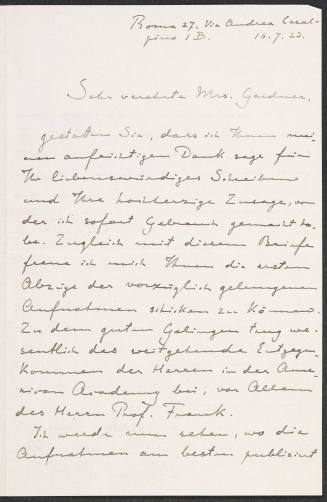 Roma 27, Via Andrea Cesal-
pino 1 B. 16.7.23.
Sehr verehrte Mrs. Gardner,
gestatten Sie, dass ich Ihnen mei-
nen aufrichtigen Dank sage für
Ihr liebenswürdiges Schreiben
und Ihre hochherzige Zusage, von
der ich sofort Gebrauch gemacht ha-
be. Zugleich mit diesem Briefe
freue ich mich Ihnen die ersten
Abzüge der vorzüglich gelungenen
Aufnahmen schicken zu können.
Zu dem guten Gelingen trug we-
sentlich das weitgehende Entgegen-
kommen der Herren in der Ame-
rican Academy bei, vor Allem
des Herrn Prof. Frank.
Ich werde nun sehen, wo die
Aufnahmen am besten publiciert